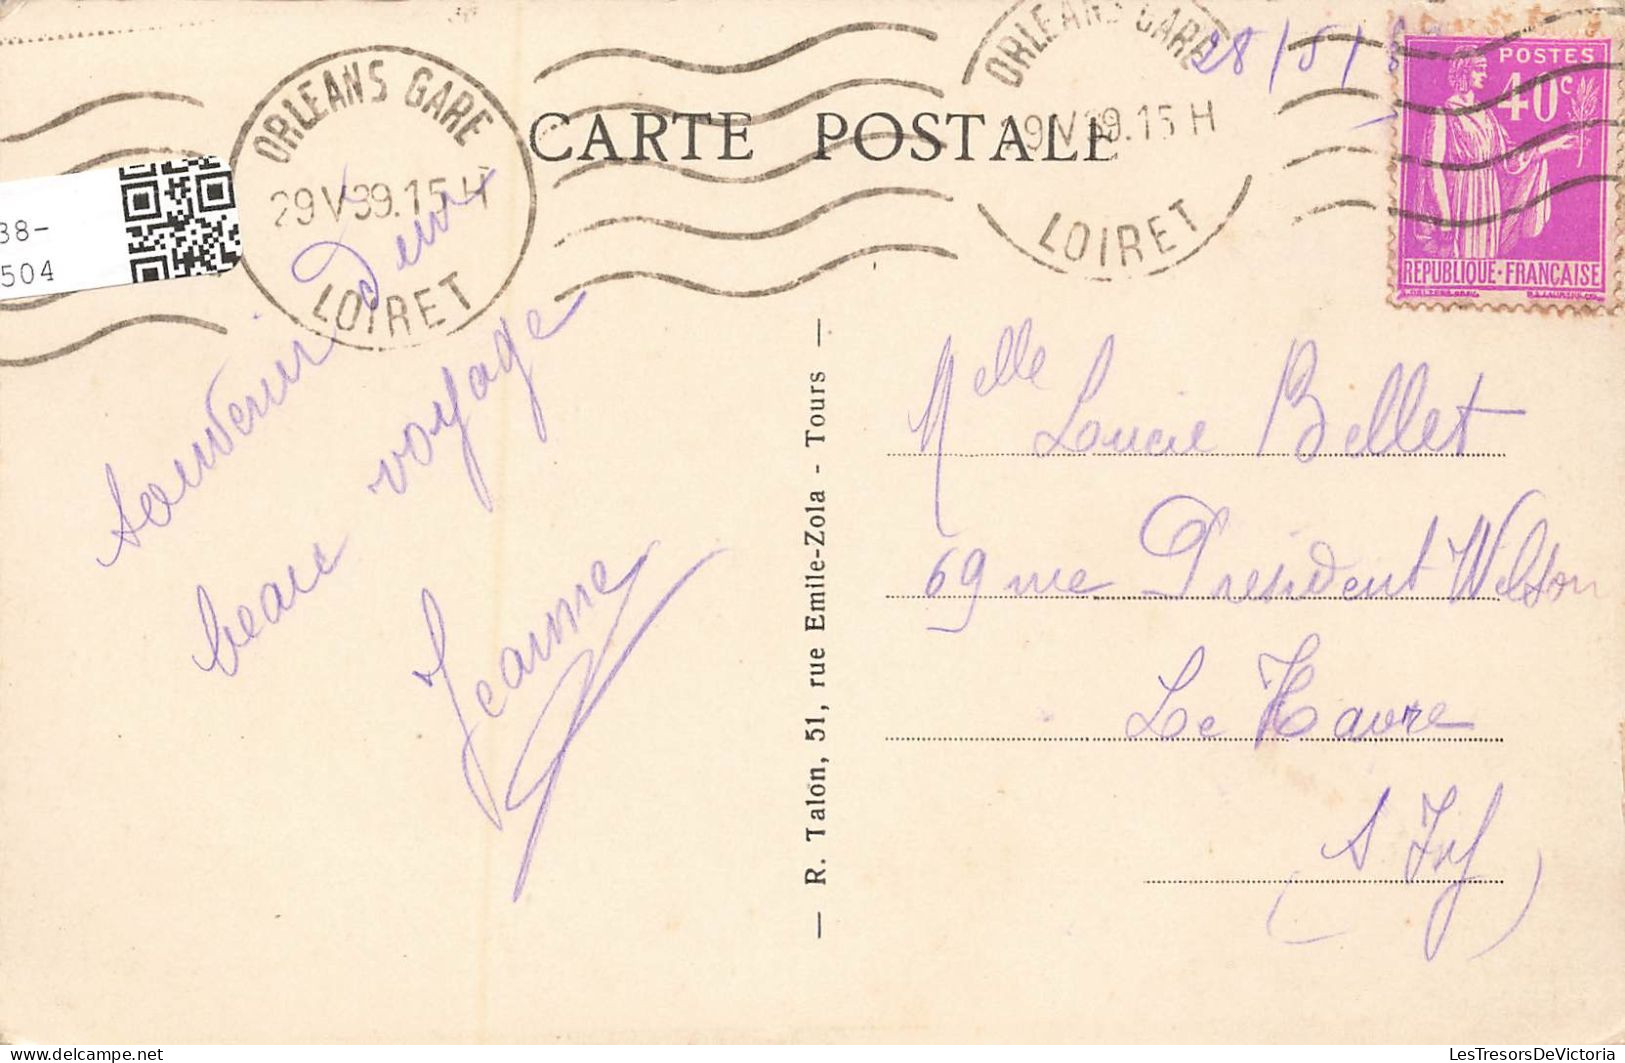 ORLEANS GARE
29 V 39.15 H
LOIRET
38-
504
CARTE POSTALE
ORLEANS GARE
29 V 39.15 H
LOIRET
28/5/
POSTES
40c
REPUBLIQUE·FRANÇAISE
souvenir d'un
beau voyage
Jeanne
— R. Talon, 51, rue Emile-Zola - Tours —
Melle Loucie Bellet
69 rue Président Wilson
Le Havre
(S. Inf)
LesTresorsDeVictoria
delcampe.net